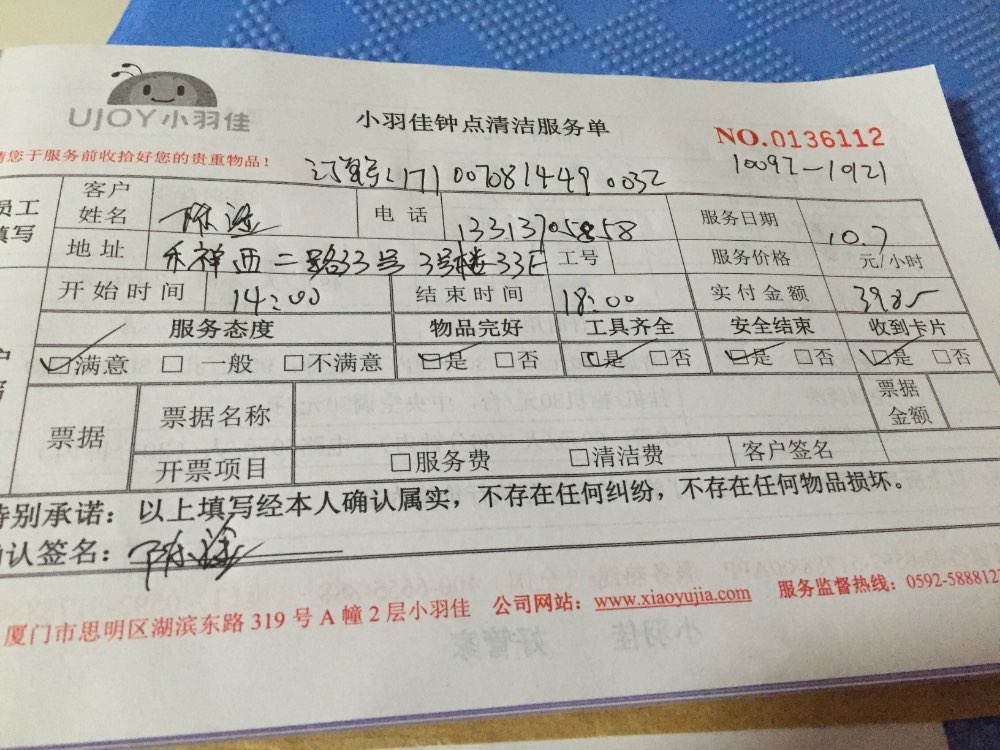 UJOY小羽佳
小羽佳钟点清洁服务单
NO.0136112
请您于服务前收拾好您的贵重物品！
订单号：171007081449 0032
10092-1921
员工
填写
客户
姓名
陈
电话
13313705858
服务日期
10.7
地址
禾祥西二路33号 3号楼33E
工号
服务价格
元/小时
开始时间
14:00
结束时间
18:00
实付金额
服务态度
物品完好
工具齐全
安全结束
收到卡片
户
☑满意 □一般 □不满意
☑是 □否
☑是 □否
☑是 □否
☑是 □否
票据
票据名称
票据
金额
开票项目
□服务费 □清洁费
客户签名
特别承诺：以上填写经本人确认属实，不存在任何纠纷，不存在任何物品损坏。
确认签名：陈
厦门市思明区湖滨东路319号A幢2层小羽佳 公司网站：www.xiaoyujia.com 服务监督热线：0592-588812
小羽佳 好管家